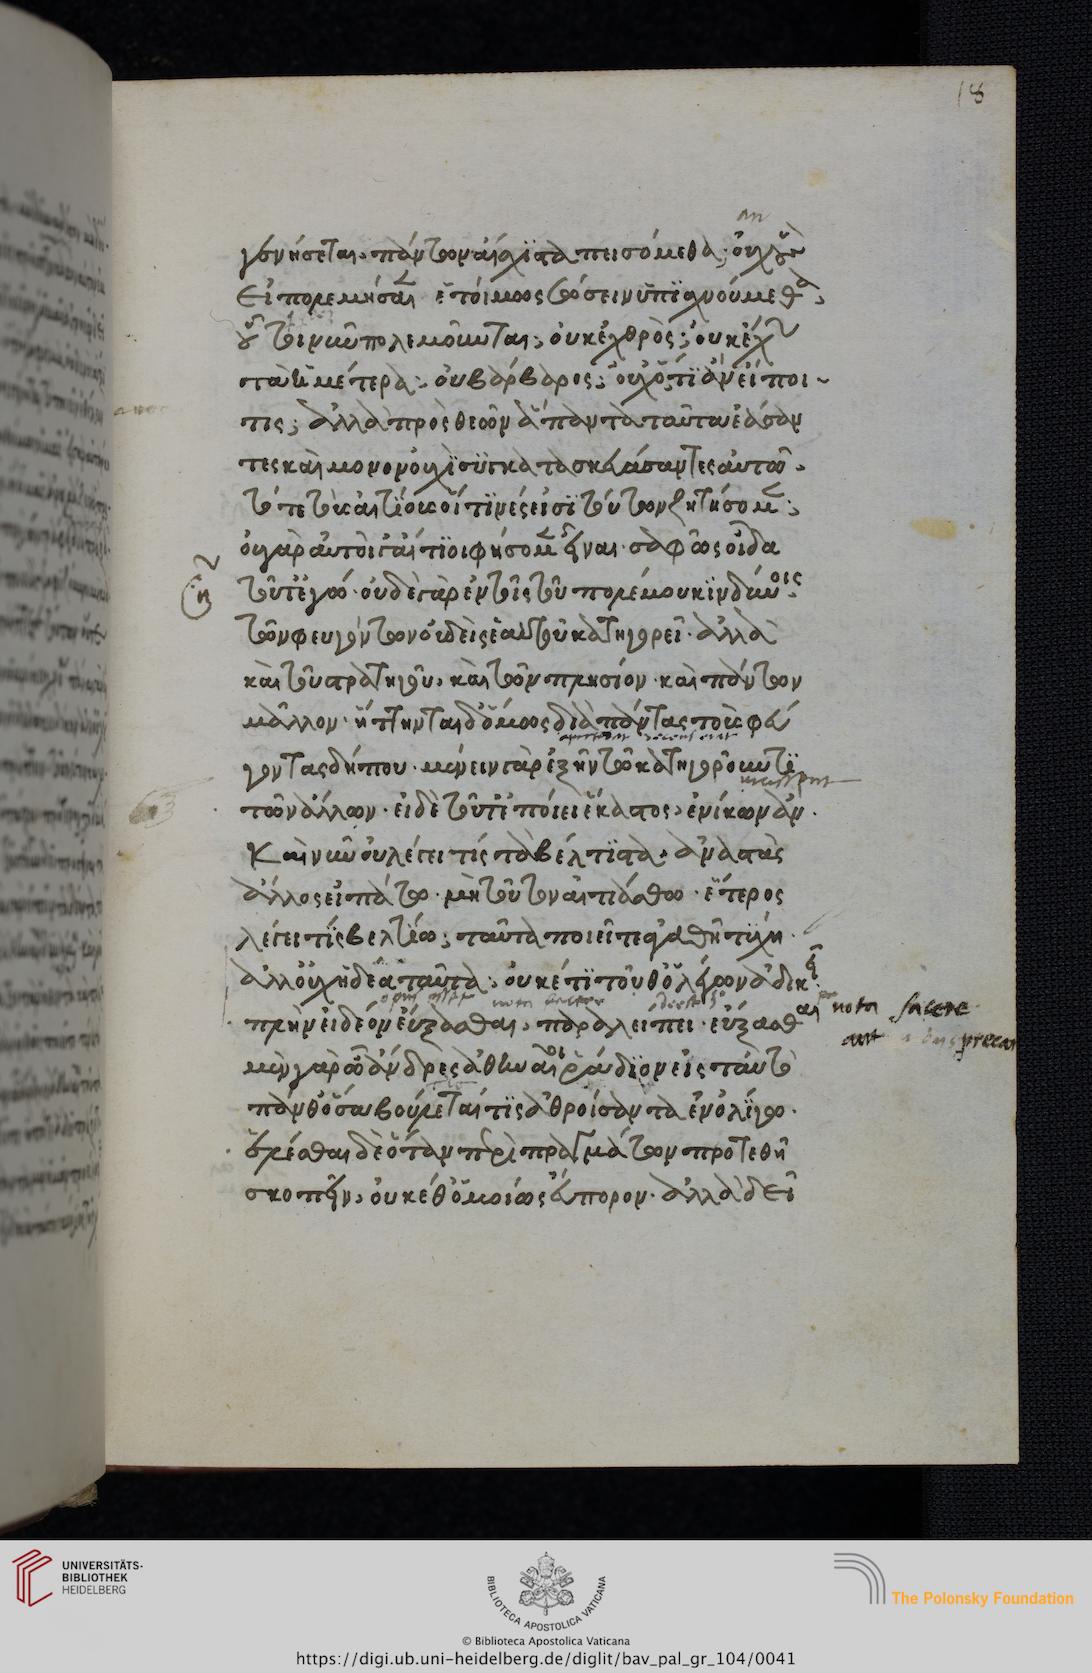 18
γενήσεται, πάντων αἴσχιστα πεισόμεθα; οὐχ οὓς
εἰ πολεμήσαιεν ἑτοίμως σώσειν ὑπισχνούμεθα,
οὗτοι νῦν πολεμοῦνται; οὐκ ἐχθρὸς; οὐκ ἔχων
τὰ ἡμέτερα; οὐ βάρβαρος; οὐχ ὅτι ἂν εἴποι
τις; ἀλλὰ πρὸς θεῶν ἅπαντα ταῦτα ἐάσαν
τες καὶ μόνον οὐχὶ συγκατασκευάσαντες αὐτῶ,
τότε τοὺς αἰτίους οἵτινές εἰσὶ τούτων ζητήσομεν;
οὐ γὰρ αὐτοί γ' αἴτιοι φήσομεν εἶναι σαφῶς οἶδα
τοῦτ' ἐγώ· οὐδὲ γὰρ ἐν τοῖς τοῦ πολέμου κινδύνοις
τῶν φευγόντων οὐδεὶς ἑαυτοῦ κατηγορεῖ· ἀλλὰ
καὶ τοῦ στρατηγοῦ, καὶ τῶν πλησίον· καὶ πάντων
μᾶλλον· ἥττηνται δ' ὅμως διὰ πάντας τοὺς φεύ
γοντας δήπου· μένειν γὰρ ἐξῆν τῶ κατηγοροῦντι
τῶν ἄλλων· εἰ δὲ τοῦτ' ἐποίει ἕκαστος, ἐνίκων ἄν·
Καὶ νῦν οὐ λέγει τίς τὰ βέλτιστα· ἀναστὰς
ἄλλος εἰπάτω· μὴ τοῦτον αἰτιάσθω· ἕτερος
λέγει τίς βελτίω; ταῦτα ποιεῖτ' ἀγαθῆ τύχη·
ἀλλ' οὐχ ἡδέα ταῦτα; οὐκέτι τοῦθ' ὁ λέγων ἀδικεῖ·
πλὴν εἰ δέον εὔξασθαι, παραλείπει· εὔξασθαι
μὲν γὰρ ὦ ἄνδρες ἀθηναῖοι ῥάδιον εἰς ταὐτὸ
πάνθ' ὅσα βούλεταί τις ἀθροίσαντα ἐν ὀλίγω·
ἑλέσθαι δὲ ὅταν περὶ πραγμάτων προτεθῆ
σκοπεῖν, οὐκέθ' ὁμοίως εὔπορον· ἀλλὰ δεῖ
UNIVERSITÄTS-
BIBLIOTHEK
HEIDELBERG
BIBLIOTECA APOSTOLICA VATICANA
The Polonsky Foundation
© Biblioteca Apostolica Vaticana
https://digi.ub.uni-heidelberg.de/diglit/bav_pal_gr_104/0041